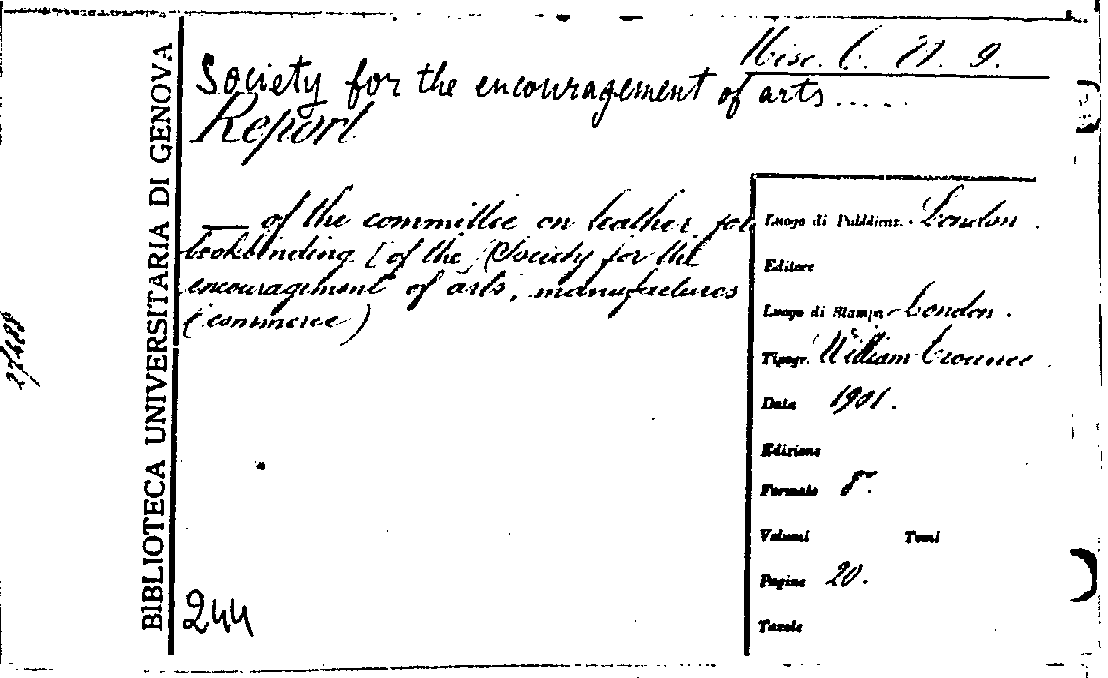 Misc. C. 21. 9.
Society for the encouragement of arts.....
Report
— of the committee on leather for
bookbinding [of the Society for the
encouragement of arts, manufactures
(commerce)
Luogo di Pubblicaz. London.
Editore
Luogo di Stampa London.
Tipogr. William
Data 1901.
Edizione
Formato 8°.
Volumi Tomi
Pagine 20.
Tavole
244
BIBLIOTECA UNIVERSITARIA DI GENOVA